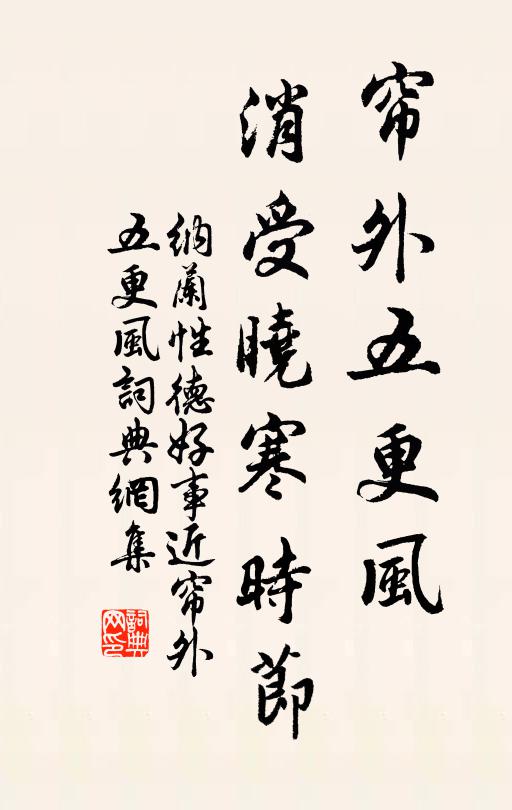 帘外五更風
消受曉寒時節
納蘭性德好事近帘外
五更風詞典網集
詞典
网印